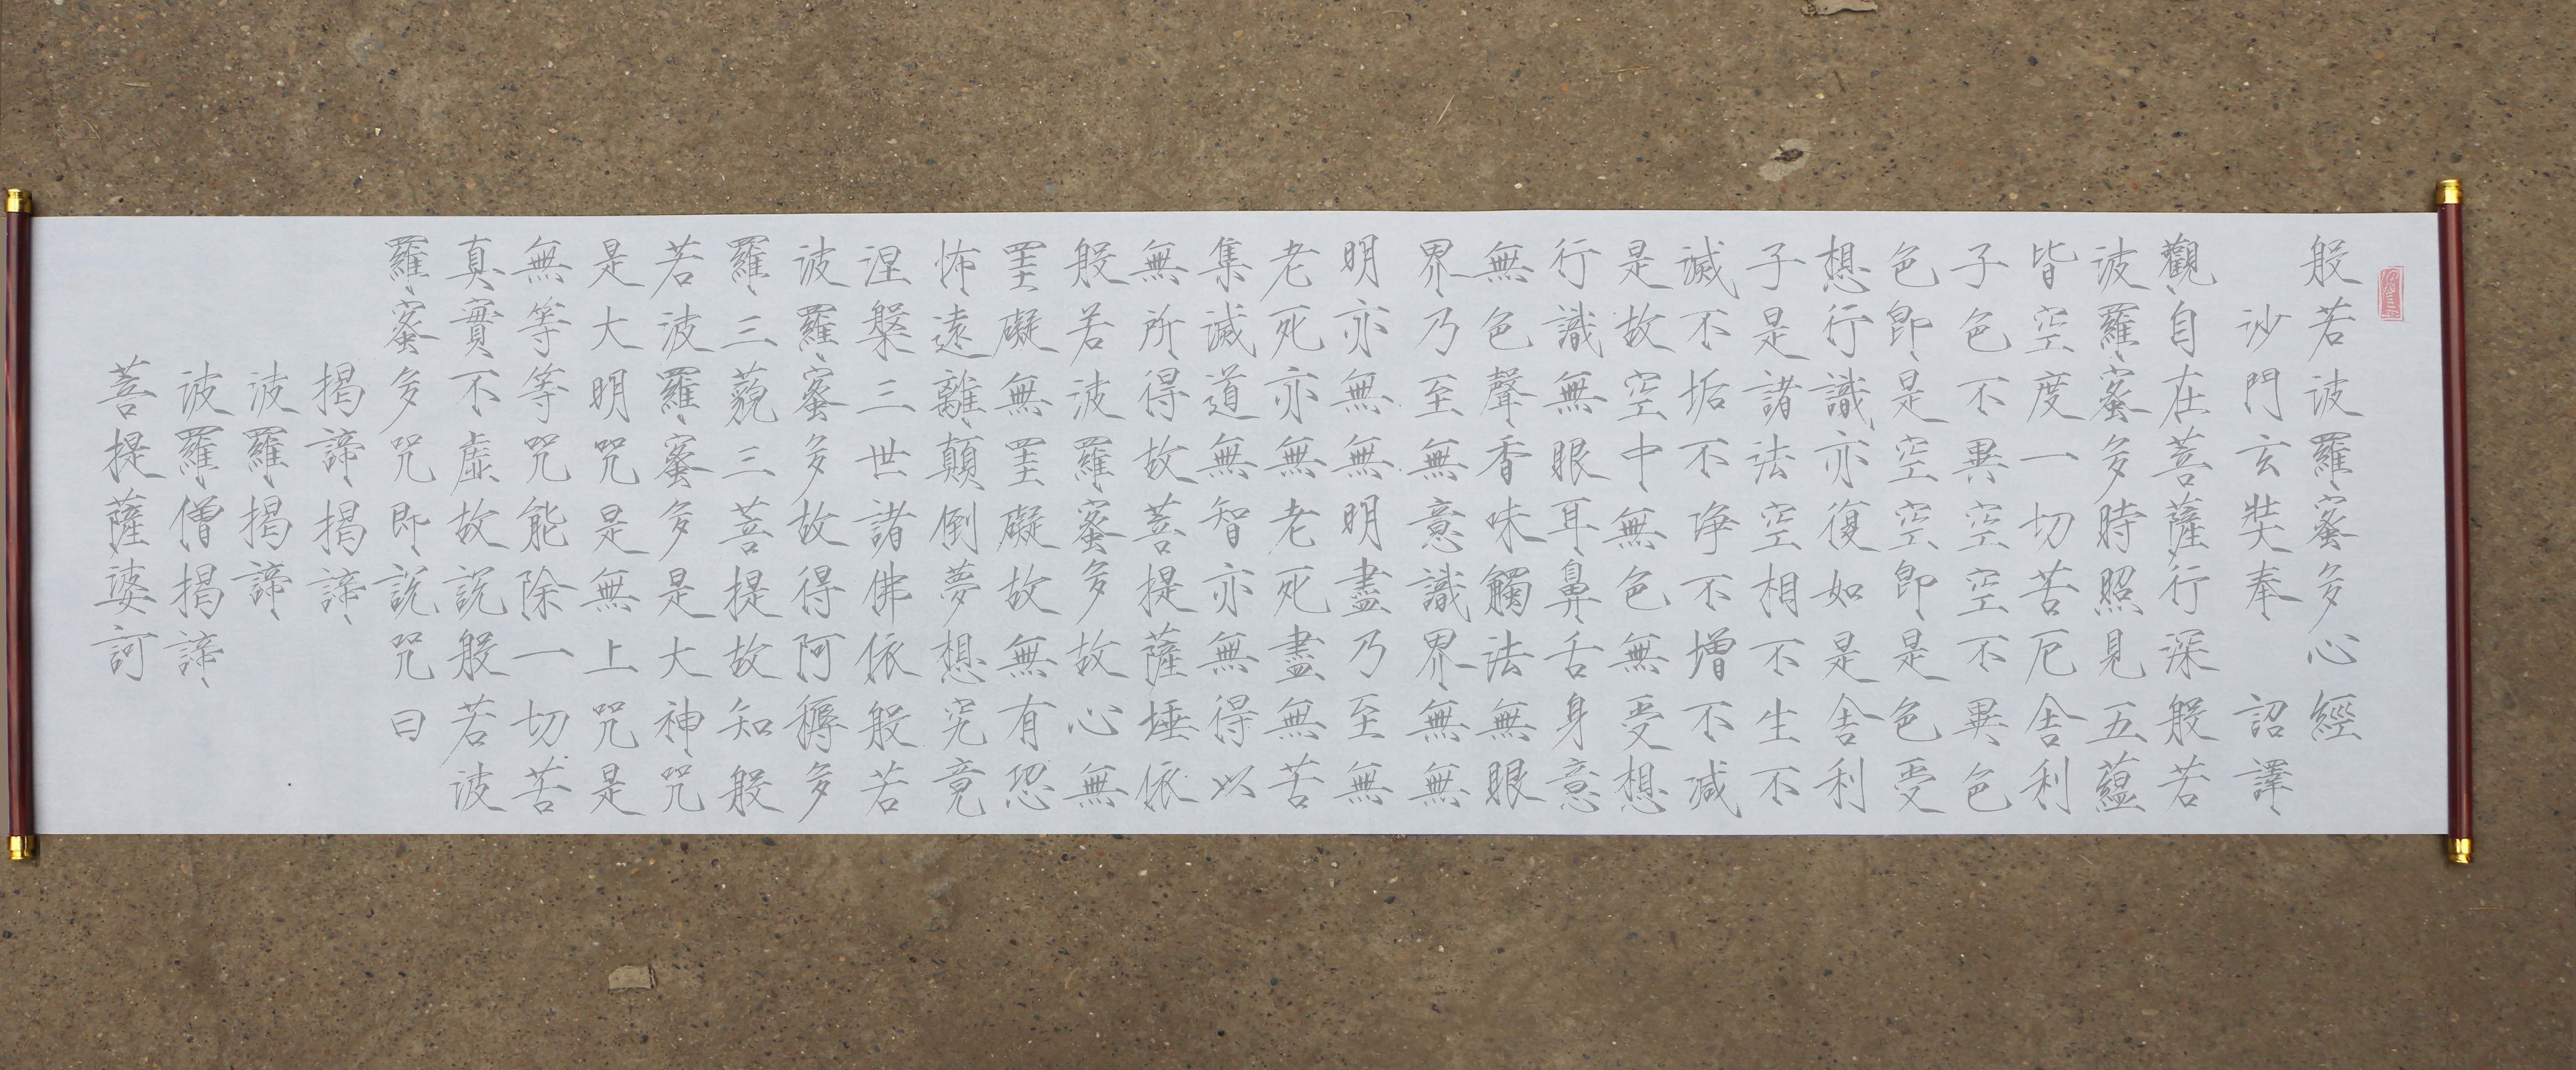 般若波羅蜜多心經
沙門玄奘奉 詔譯
觀自在菩薩行深般若
波羅蜜多時照見五蘊
皆空度一切苦厄舍利
子色不異空空不異色
色即是空空即是色受
想行識亦復如是舍利
子是諸法空相不生不
滅不垢不淨不增不減
是故空中無色無受想
行識無眼耳鼻舌身意
無色聲香味觸法無眼
界乃至無意識界無無
明亦無無明盡乃至無
老死亦無老死盡無苦
集滅道無智亦無得以
無所得故菩提薩埵依
般若波羅蜜多故心無
罣礙無罣礙故無有恐
怖遠離顛倒夢想究竟
涅槃三世諸佛依般若
波羅蜜多故得阿耨多
羅三藐三菩提故知般
若波羅蜜多是大神咒
是大明咒是無上咒是
無等等咒能除一切苦
真實不虛故說般若波
羅蜜多咒即說咒曰
揭諦揭諦
波羅揭諦
波羅僧揭諦
菩提薩婆訶